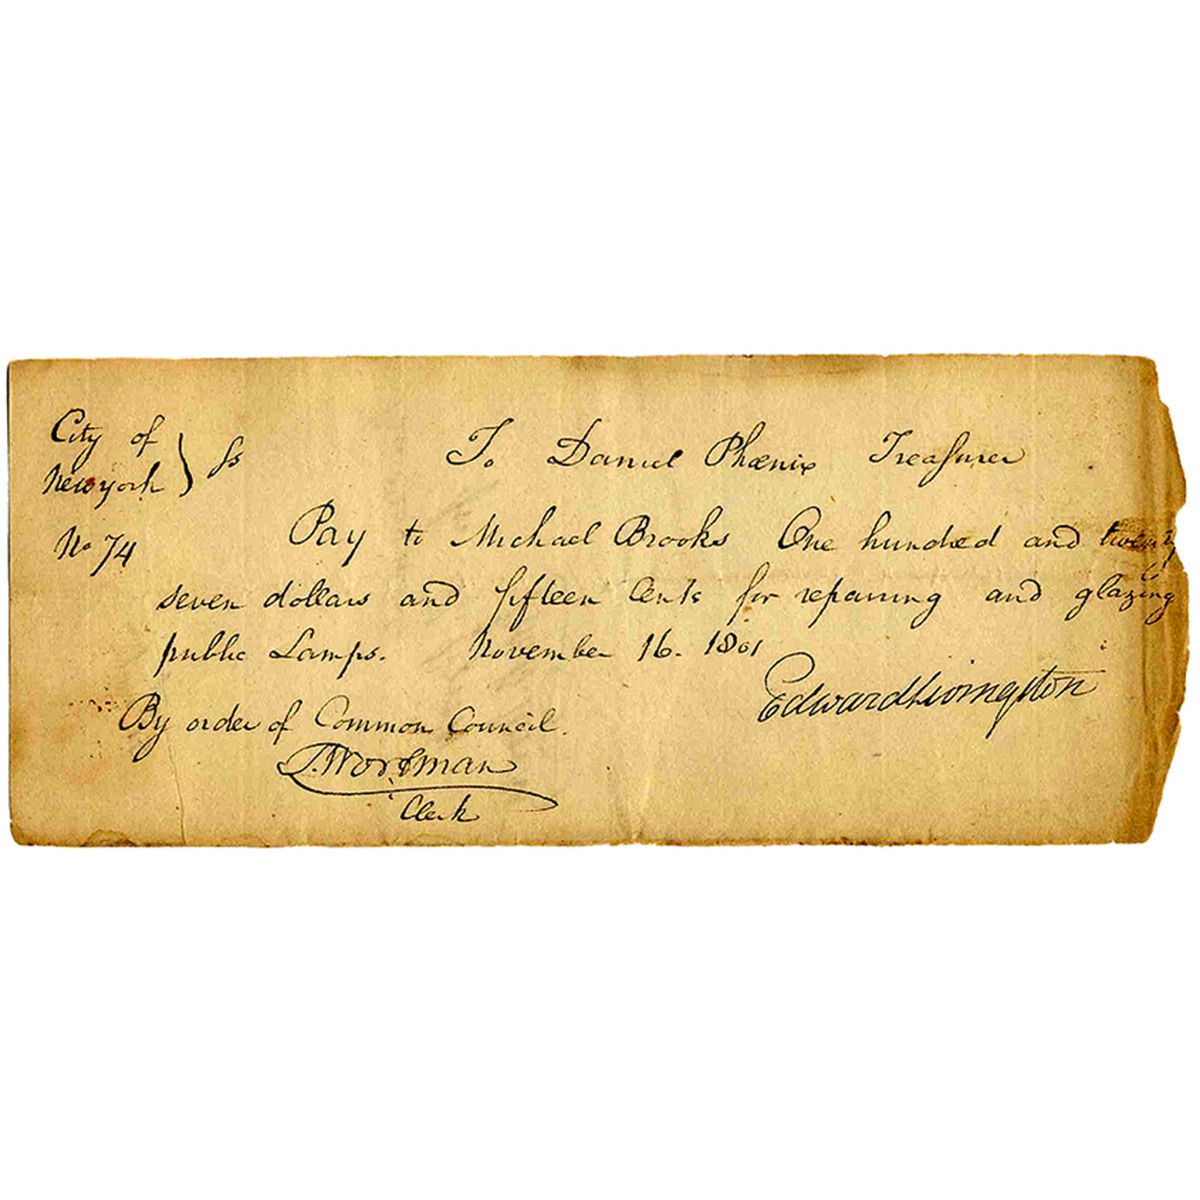 City of
New york } ss
To Daniel Phœnix Treasurer
No 74
Pay to Michael Brooks One hundred and twenty
seven dollars and fifteen Cents for repairing and glazing
public Lamps. November 16. 1801
Edward Livingston
By order of Common Council.
T. Wortman
Clerk